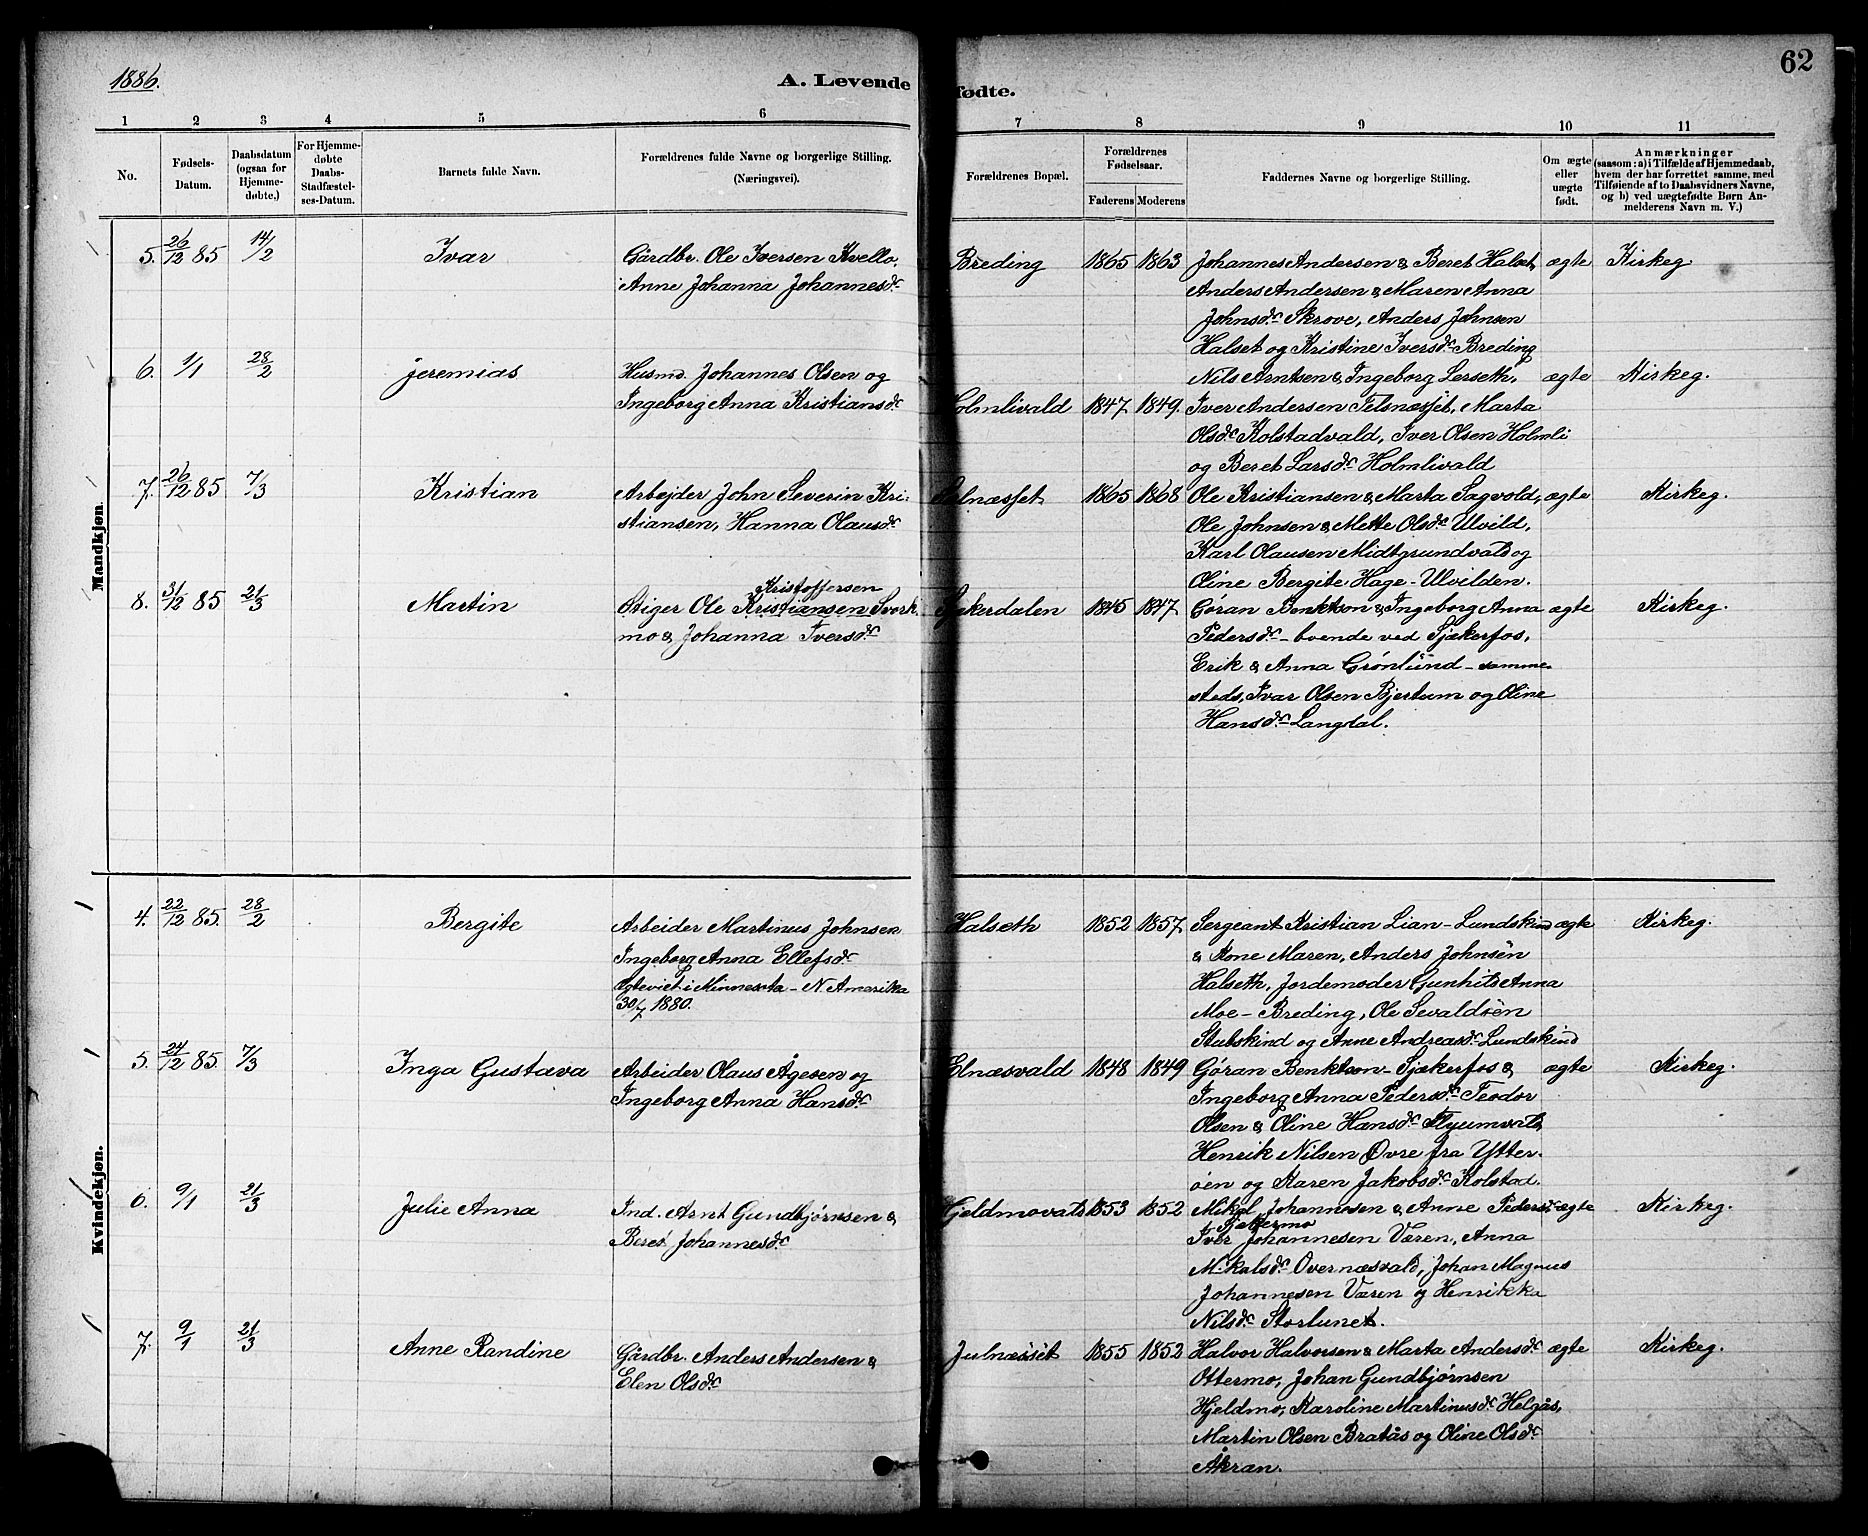 1886.
A. Levende fødte.
62
1 2 3 4 5 6 7 8 9 10 11
No.
Fødsels-
Datum.
Daabsdatum
(ogsaa for
Hjemme-
døbte.)
For Hjemme-
døbte
Daabs-
Stadfæstel-
ses-Datum.
Barnets fulde Navn.
Forældrenes fulde Navne og borgerlige Stilling.
(Næringsvei).
Forældrenes Bopæl.
Forældrenes
Fødselsaar.
Faderens Moderens
Faddernes Navne og borgerlige Stilling.
Om ægte
eller
uægte
født.
Anmærkninger
(saasom: a) i Tilfælde af Hjemmedaab,
hvem der har forrettet samme, med
Tilføiende af to Daabsvidners Navne,
og b) ved uægtefødte Børn An-
melderens Navn m. V.)
Mandkjøn.
5. 26/12 85 14/2 Ivar Gårdbr. Ole Iversen Kvello, Breding 1865 1863 Johannes Andersen & Beret Halset, ægte Kirkeg.
Anne Johanna Johannesdr Anders Andersen & Maren Anna
Johnsdr Skrove, Anders Johnsen
Halset og Kristine Iversdr Breding
6. 1/1 28/2 Jeremias Husmd. Johannes Olsen og Nils Arntsen & Ingeborg Lerseth, ægte Kirkeg.
Ingeborg Anna Kristiansdr Holmlivald 1847 1849 Iver Andersen Telsnæsset, Marta
Olsdr Kolstadvald, Iver Olsen Holmli
og Beret Larsdr Holmlivald
7. 26/12 85 7/3 Kristian Arbejder John Severin Kri- 1865 1868 Ole Kristiansen & Marta Sagvold, ægte Kirkeg.
stiansen, Hanna Olausdr Ole Johnsen & Mette Olsdr Ulvild,
Karl Olausen Midtgrundvald og
Oline Bergite Hage-Ulvilden.
Kristoffersen
8. 31/12 85 21/3 Martin Stiger Ole Kristiansen Svork- Sjækerdalen 1845 1847 Gøran Benktson & Ingeborg Anna ægte Kirkeg.
mo & Johanna Iversdr Pedersdr - boende ved Sjækerfos,
Erik & Anna Grønlund - samme-
steds, Ivar Olsen Bjertum og Oline
Hansdr Langdal.
Kvindekjøn.
4. 22/12 85. 28/2 Bergite Arbeider Martinus Johnsen Halseth 1852 1857 Sergeant Kristian Lian - Lundskind ægte Kirkeg.
Ingeborg Anna Ellefsdr & Kone Maren, Anders Johnsen
Egteviet i Minnesota - N Amerika Halseth, Jordemoder Gunhild Anna
30/7 1880. Moe - Breding, Ole Sevaldsen
Stubskind og Anne Andreasdr Lundskind
5. 24/12 85. 7/3 Inga Gustava Arbeider Olaus Ågesen og Elnæsvald 1848 1849 Gøran Benktson - Sjækerfos & ægte Kirkeg.
Ingeborg Anna Hansdr Ingeborg Anna Pedersdr Teodor
Olsen & Oline Hansdr
Henrik Nilsen Øvre fra Ytter-
øen og Karen Jakobsdr Kolstad.
6. 9/1 21/3 Julie Anna Ind. Arnt Gundbjørnsen & Hjeldmovald 1853 1852 Mikal Johannesen & Anne Pedersdr ægte Kirkeg.
Beret Johannesdr Iver Johannesen Væren, Anna
Mikalsdr Overnæsvald, Johan Magnus
Johannesen Væren og Henrikka
Nilsdr Storlunet.
7. 9/1 21/3 Anne Randine Gårdbr. Anders Andersen & Julnæsset 1855 1852 Halvor Halvorsen & Marta Andersdr ægte Kirkeg.
Elen Olsdr Ottermo, Johan Gundbjørnsen
Hjeldmo, Karoline Martinusdr Helgås,
Martin Olsen Bratås og Oline Olsdr
Åkran.